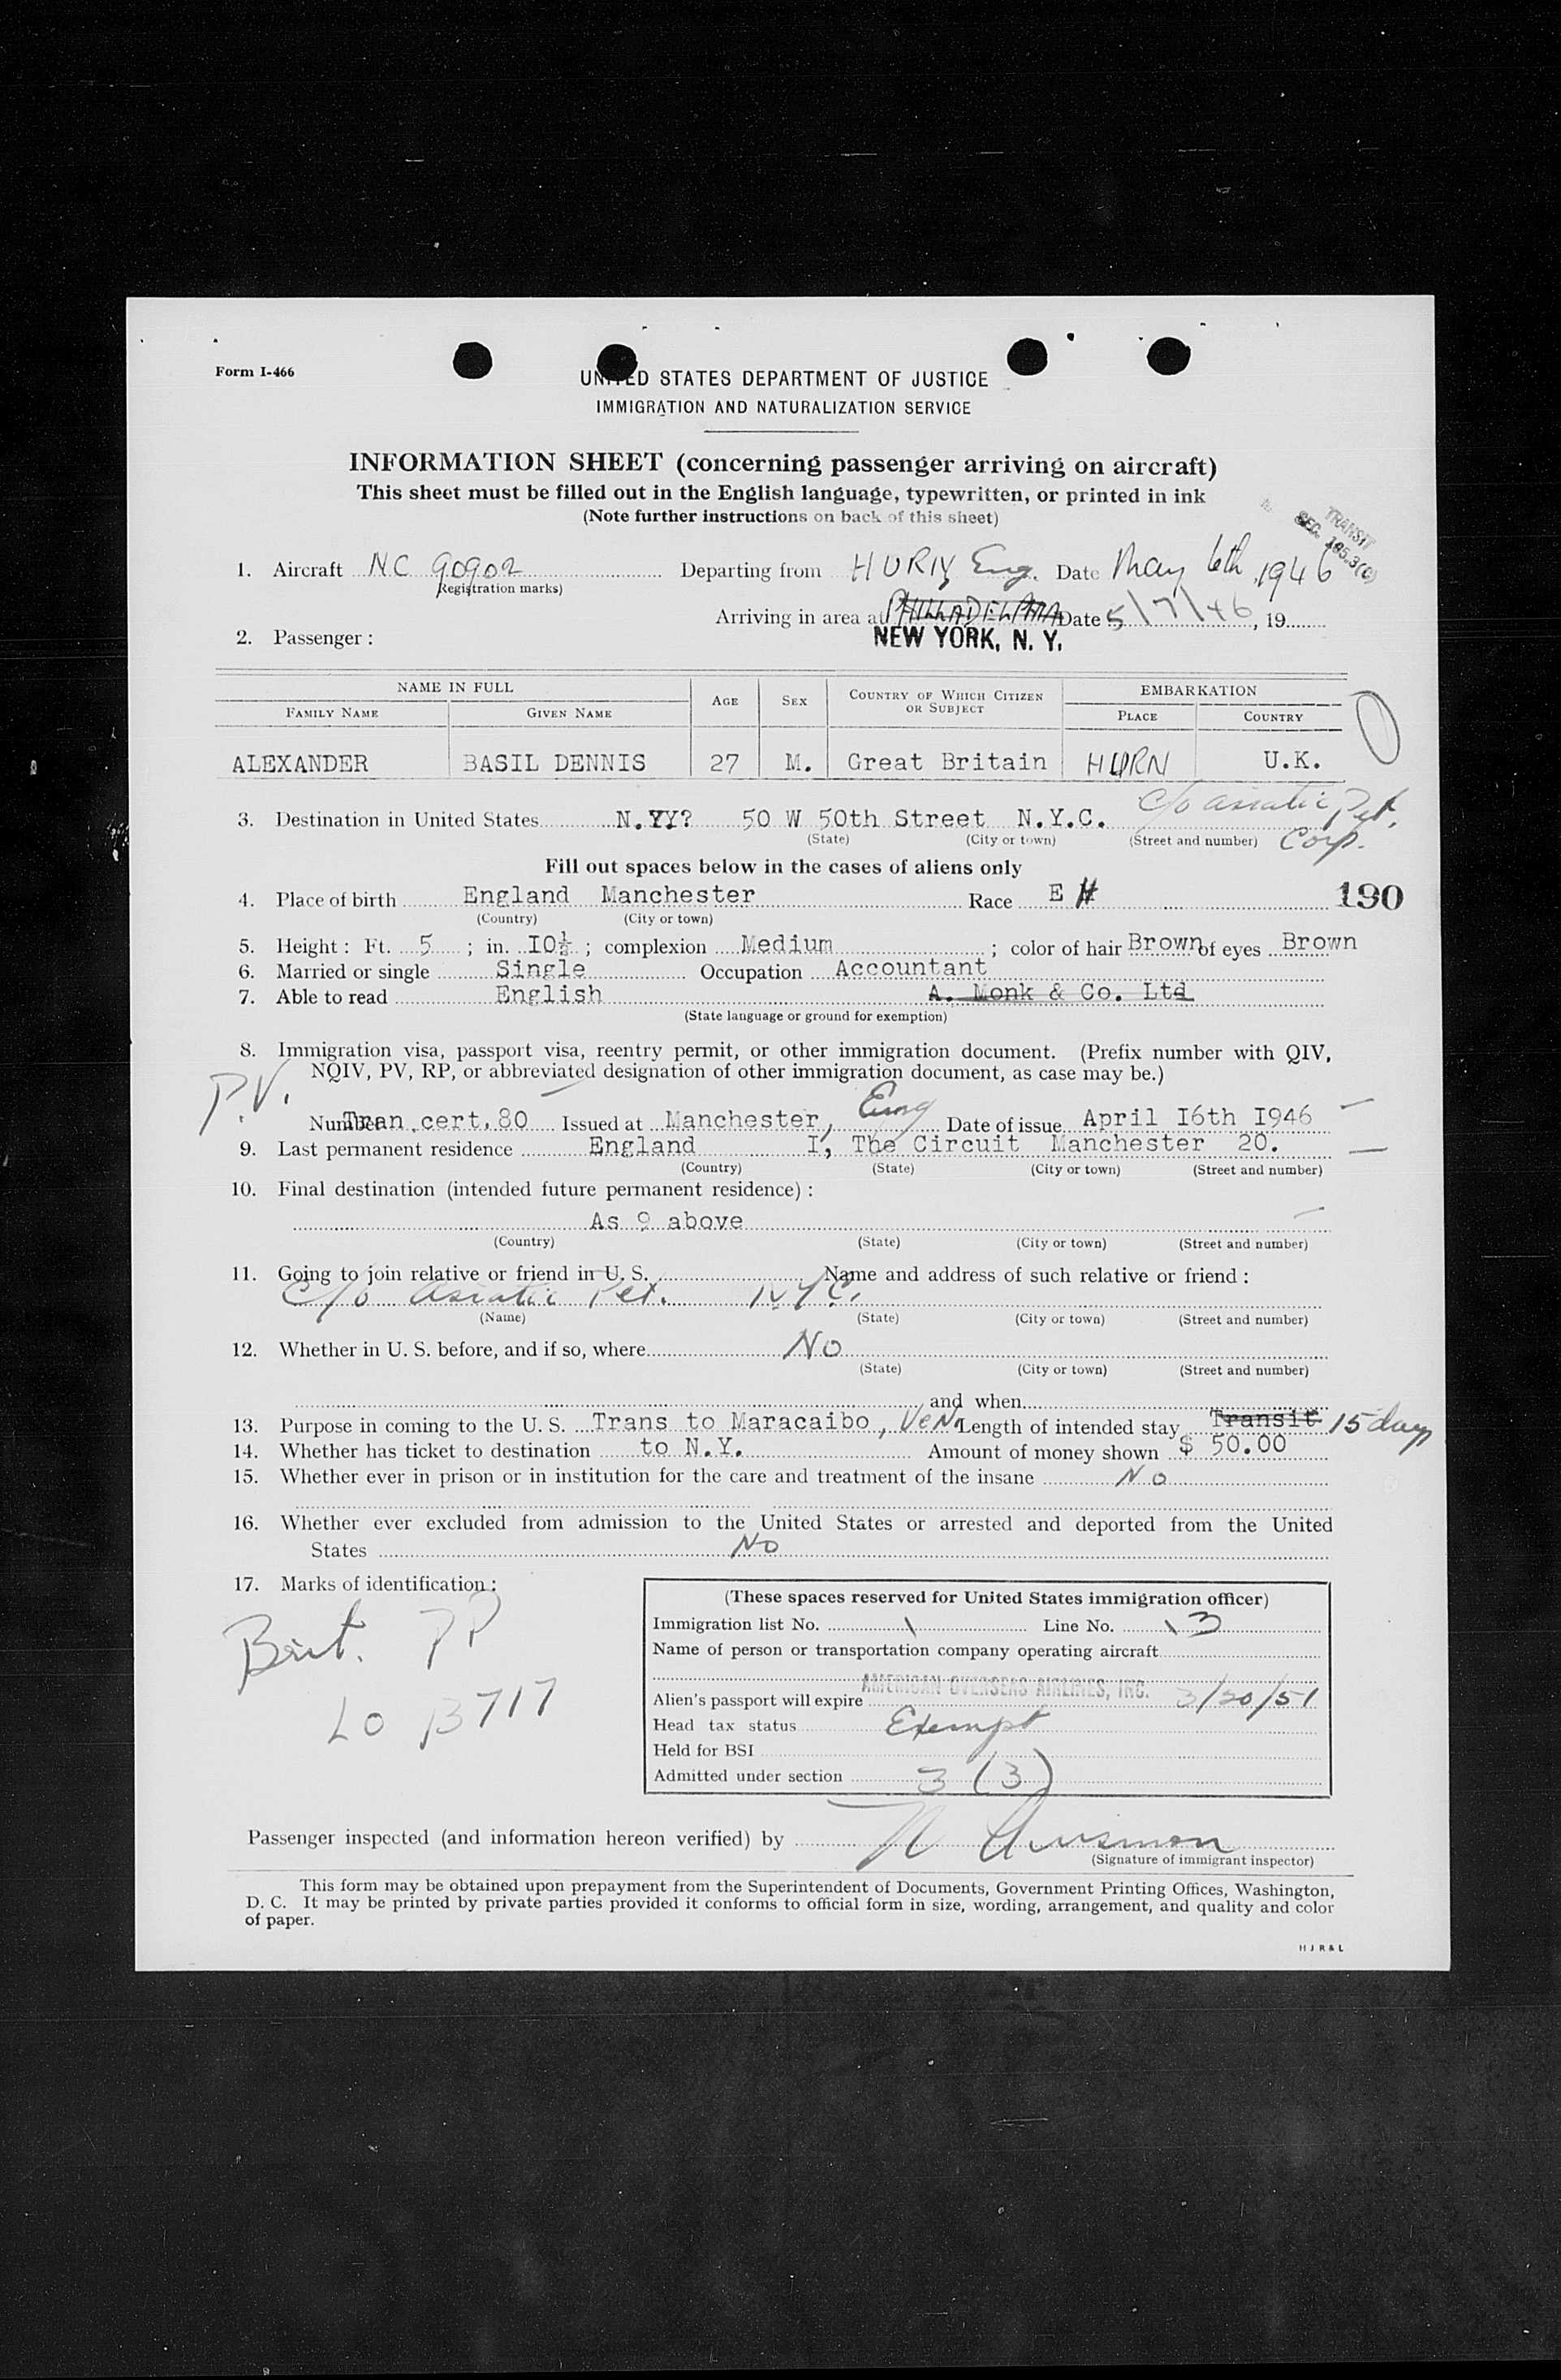 Form I-466
UNITED STATES DEPARTMENT OF JUSTICE
IMMIGRATION AND NATURALIZATION SERVICE
INFORMATION SHEET (concerning passenger arriving on aircraft)
This sheet must be filled out in the English language, typewritten, or printed in ink
(Note further instructions on back of this sheet)
TRANSIT
SEC. 185.3(c)
1. Aircraft NC 90902 Departing from HURN Eng. Date May 6th, 1946
(Registration marks)
Arriving in area at PHILLADELPHIA Date 5/7/46, 19
NEW YORK, N. Y.
2. Passenger:
NAME IN FULL AGE SEX COUNTRY OF WHICH CITIZEN OR SUBJECT EMBARKATION
FAMILY NAME GIVEN NAME PLACE COUNTRY
ALEXANDER BASIL DENNIS 27 M. Great Britain HURN U.K.
c/o Asiatic Pet. Corp.
3. Destination in United States N.YY? 50 W 50th Street N.Y.C.
(State) (City or town) (Street and number)
Fill out spaces below in the cases of aliens only
4. Place of birth England Manchester Race E 190
(Country) (City or town)
5. Height: Ft. 5 ; in. I0½ ; complexion Medium ; color of hair Brown of eyes Brown
6. Married or single Single Occupation Accountant
7. Able to read English A. Monk & Co. Ltd
(State language or ground for exemption)
8. Immigration visa, passport visa, reentry permit, or other immigration document. (Prefix number with QIV,
NQIV, PV, RP, or abbreviated designation of other immigration document, as case may be.)
P.V.
Number Tran cert. 80 Issued at Manchester, Eng Date of issue April I6th I946
9. Last permanent residence England I, The Circuit Manchester 20.
(Country) (State) (City or town) (Street and number)
10. Final destination (intended future permanent residence):
As 9 above
(Country) (State) (City or town) (Street and number)
11. Going to join relative or friend in U. S. Name and address of such relative or friend:
c/o Asiatic Pet. NYC.
(Name) (State) (City or town) (Street and number)
12. Whether in U. S. before, and if so, where No
(State) (City or town) (Street and number)
and when
13. Purpose in coming to the U. S. Trans to Maracaibo, Ven. Length of intended stay Transit 15 days
14. Whether has ticket to destination to N.Y. Amount of money shown $ 50.00
15. Whether ever in prison or in institution for the care and treatment of the insane No
16. Whether ever excluded from admission to the United States or arrested and deported from the United
States No
17. Marks of identification:
Brit. PP
LO B717
(These spaces reserved for United States immigration officer)
Immigration list No. 1 Line No. 13
Name of person or transportation company operating aircraft
AMERICAN OVERSEAS AIRLINES, INC.
Alien's passport will expire 3/20/51
Head tax status Exempt
Held for BSI
Admitted under section 3 (3)
Passenger inspected (and information hereon verified) by
(Signature of immigrant inspector)
This form may be obtained upon prepayment from the Superintendent of Documents, Government Printing Offices, Washington,
D. C. It may be printed by private parties provided it conforms to official form in size, wording, arrangement, and quality and color
of paper.
H J R & L